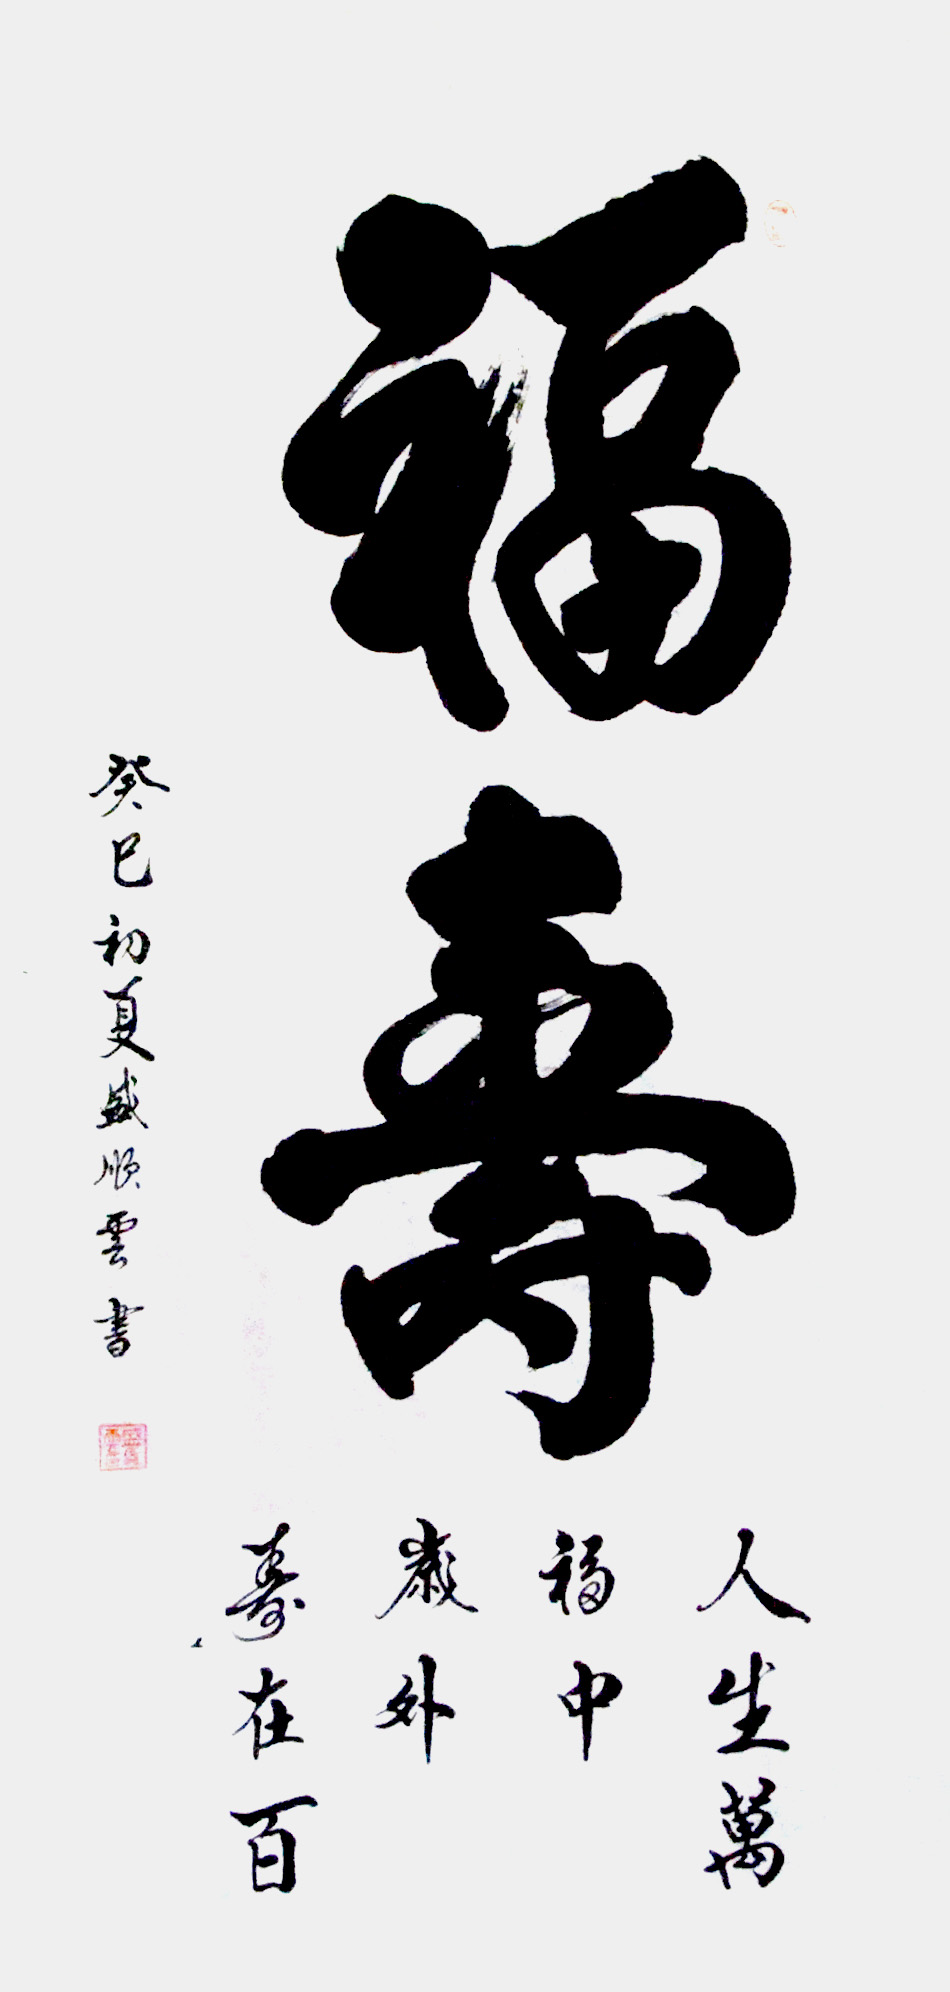 福壽
人生萬
福中
壽在百
歲外
癸巳初夏盛順雲書